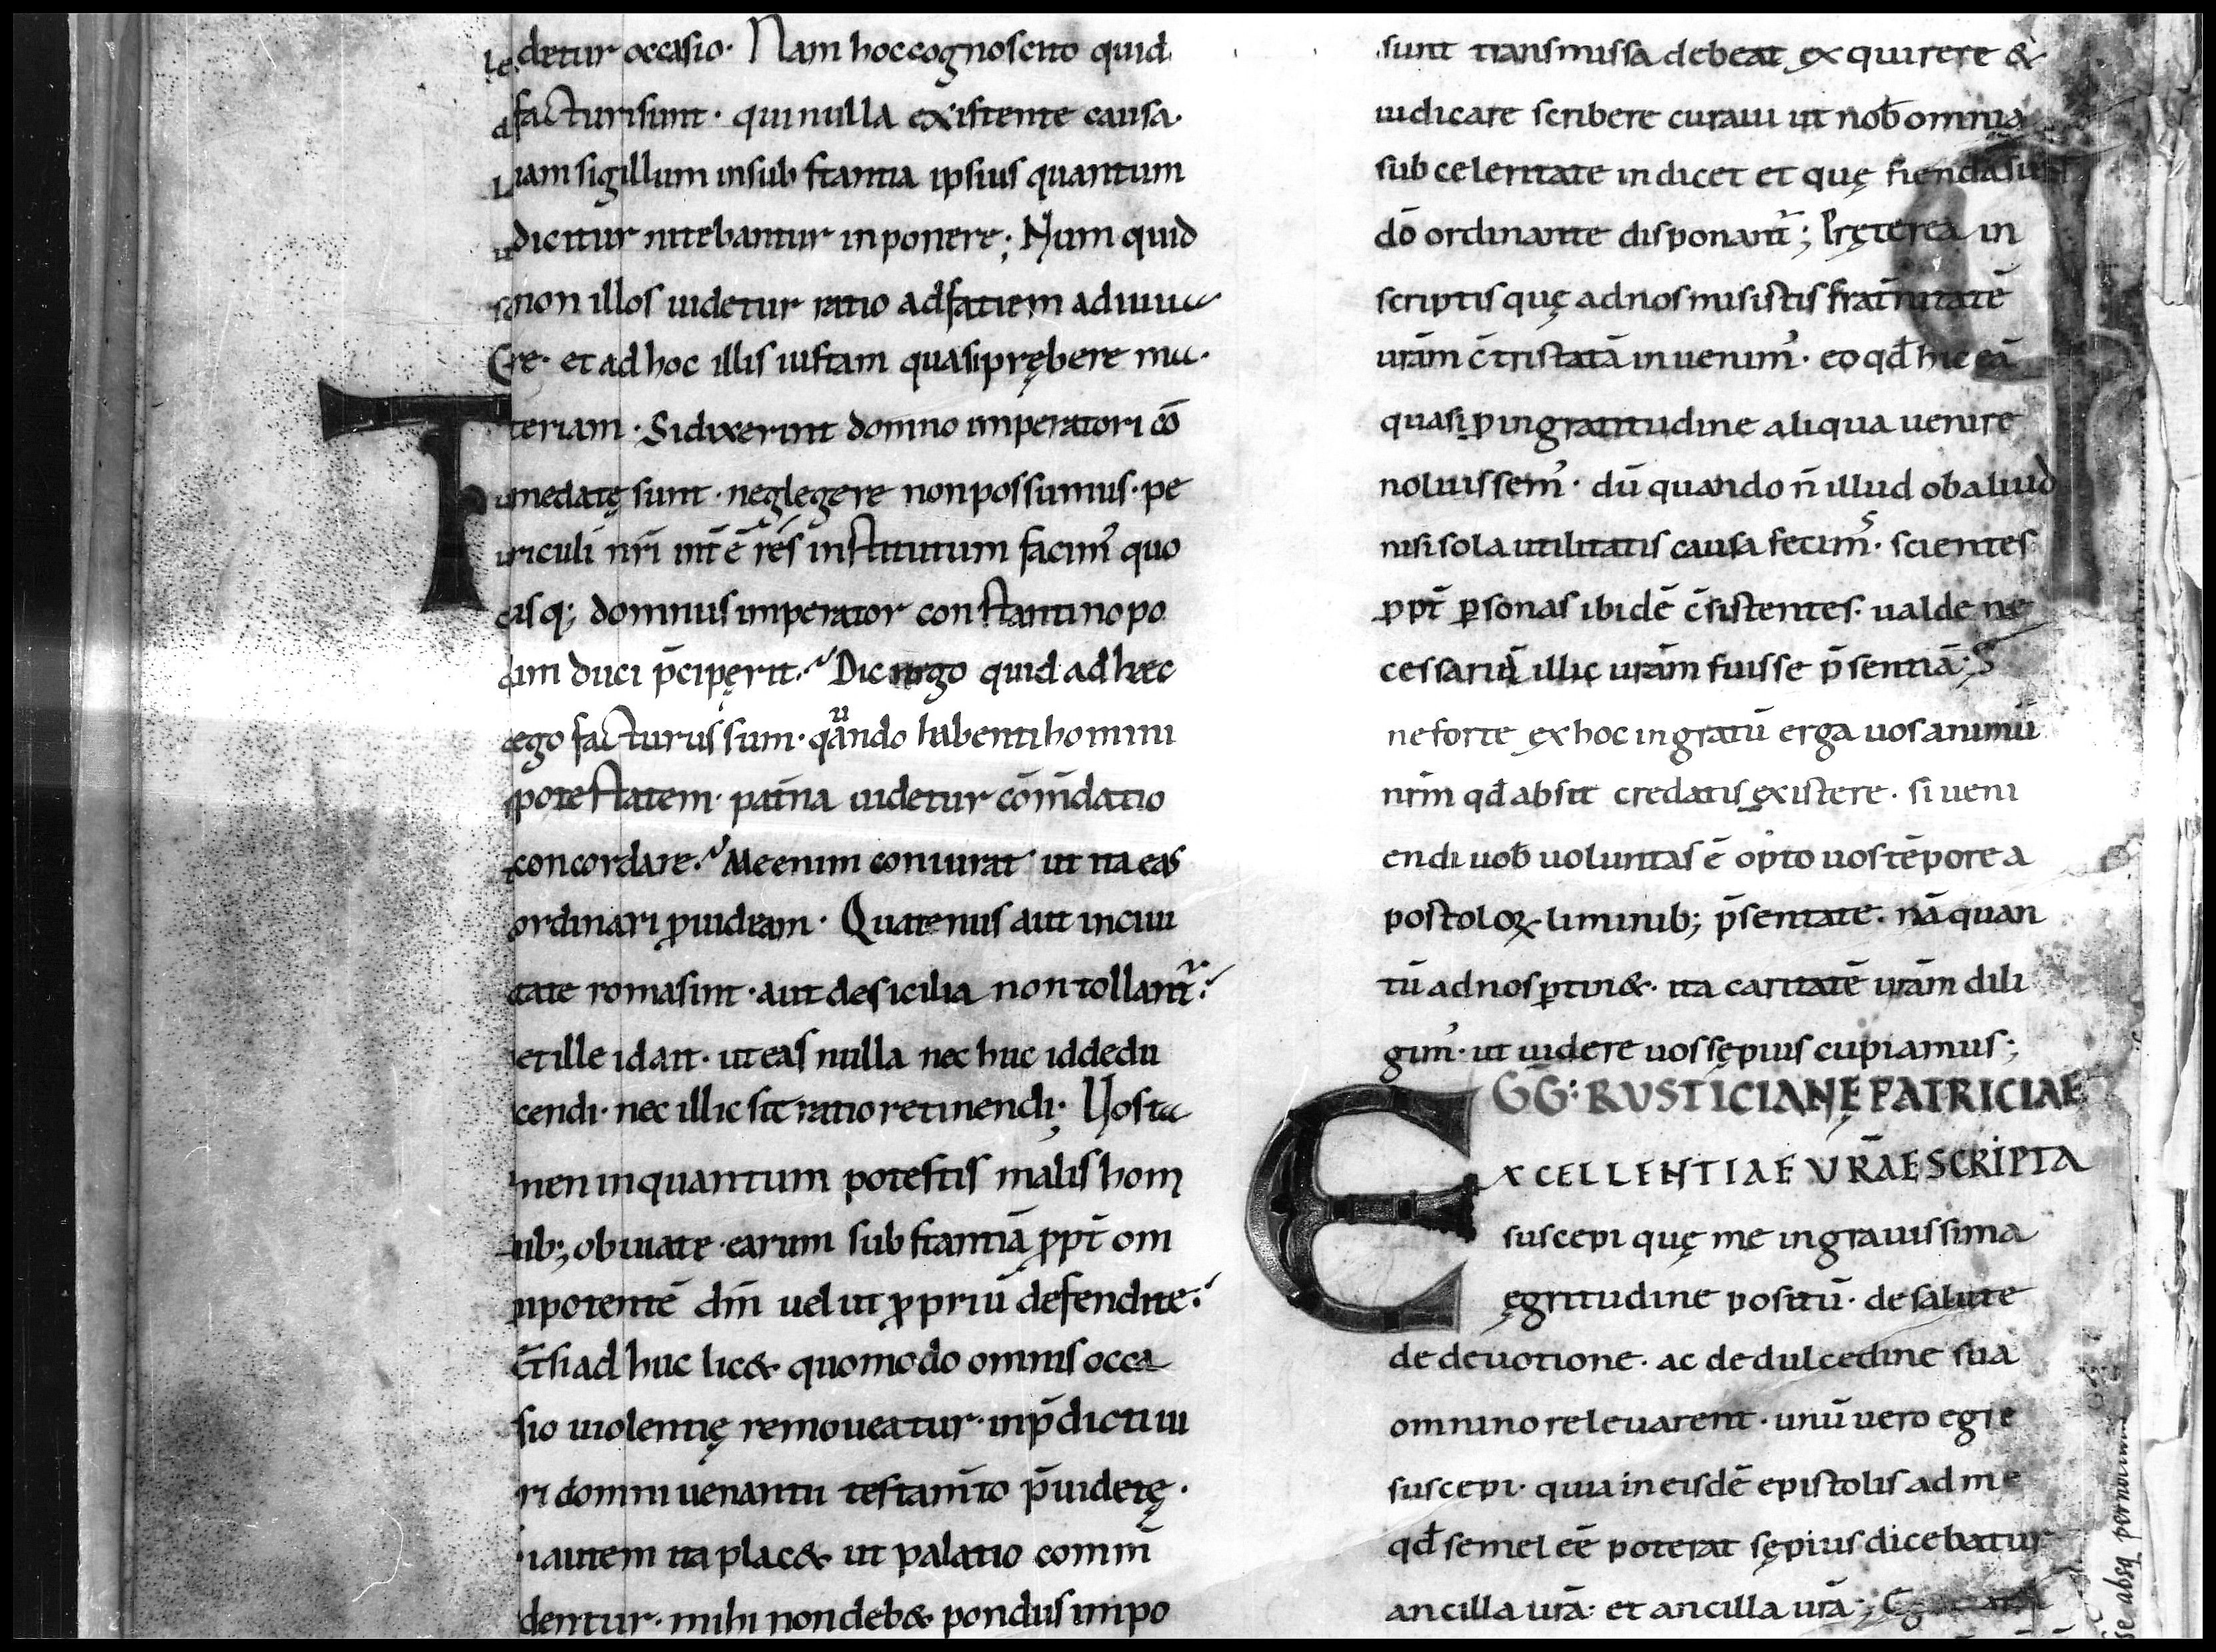 detur occasio. Nam hoc cognoscito quid
facturi sunt. qui nulla existente causa.
iam sigillum in substantia ipsius quantum
dicitur nitebantur inponere; Num quid
non illos uidetur ratio ad fatiem adiuua
re. et ad hoc illis iustam quasi prębere ma.
teriam. Si dixerint domno imperatori cō
medatę sunt. neglegere non possumus. pe
riculi nr̄i int̄ ē res institutum facim' quo
usq; domnus imperator constantinopo
im duci p̄cipęrit. Dic ergo quid ad hęc
ego facturus sum. quando habenti homini
potestatem. pat̄na uidetur cōm̄datio
concordare. Me enim coniurat ut ita eas
ordinari ꝓuideam. Quatenus aut in ciui
tate roma sint. aut de sicilia non tollant̄.
et ille id a͞it. ut eas nulla nec huc id dedu
cendi. nec illic sit ratio retinendi; Uos ta
men in quantum potestis malis hom
nib; obuiate. earum substantiā ꝓpt̄ om
nipotentē dn̄m uelut ꝓpriū defendite.
Et si ad huc lic& quomodo omnis occa
sio uiolentię remoueatur. in p̄dicti ui
ri domni uenantii testam̄to p̄uidetę.
i autem ita plac& ut palatio comm̄
dentur. mihi non deb& pondus impo
sunt transmissa debeat ęxquirere &
iudicare scribere curaui ut nob̄ omnia
sub celeritate indicet et quę fienda sunt
dō ordinante disponant̄; Pręterea in
scriptis quę ad nos misistis frat̄nitatē
ur̄am c̄tristatā inuenim'. eo qd̄ hic eā
quasi ꝑ ingratitudine aliqua uenire
noluissem'. dū quando n̄ illud ob aliud
nisi sola utilitatis causa fecim'. scientes
ꝓpt̄ ꝑsonas ibidē c̄sistentes. ualde ne
cessariū illic ur̄am fuisse p̄sentiā; S
ne forte ęx hoc ingratū erga uos animū
nr̄m qd̄ absit credatis ęxistere. si ueni
endi uob̄ uoluntas ē opto uos tēpore a
postoloꝝ liminib; p̄sentate. nā quan
tū ad nos ꝑtin&. ita caritatē ur̄am dili
gim'. ut uidere uos sępius cupiamus;
GG: RUSTICIANĘ PATRICIAE
EXCELLENTIAE UR̄AE SCRIPTA
suscepi quę me in grauissima
ęgritudine positū. de salute
de deuotione. ac de dulcedine sua
omnino releuarent. unū uero egre
suscepi. quia in eisdē epistolis ad me
qd̄ semel eē poterat sępius dicebatur
ancilla ur̄a: et ancilla ur̄a;
se absq